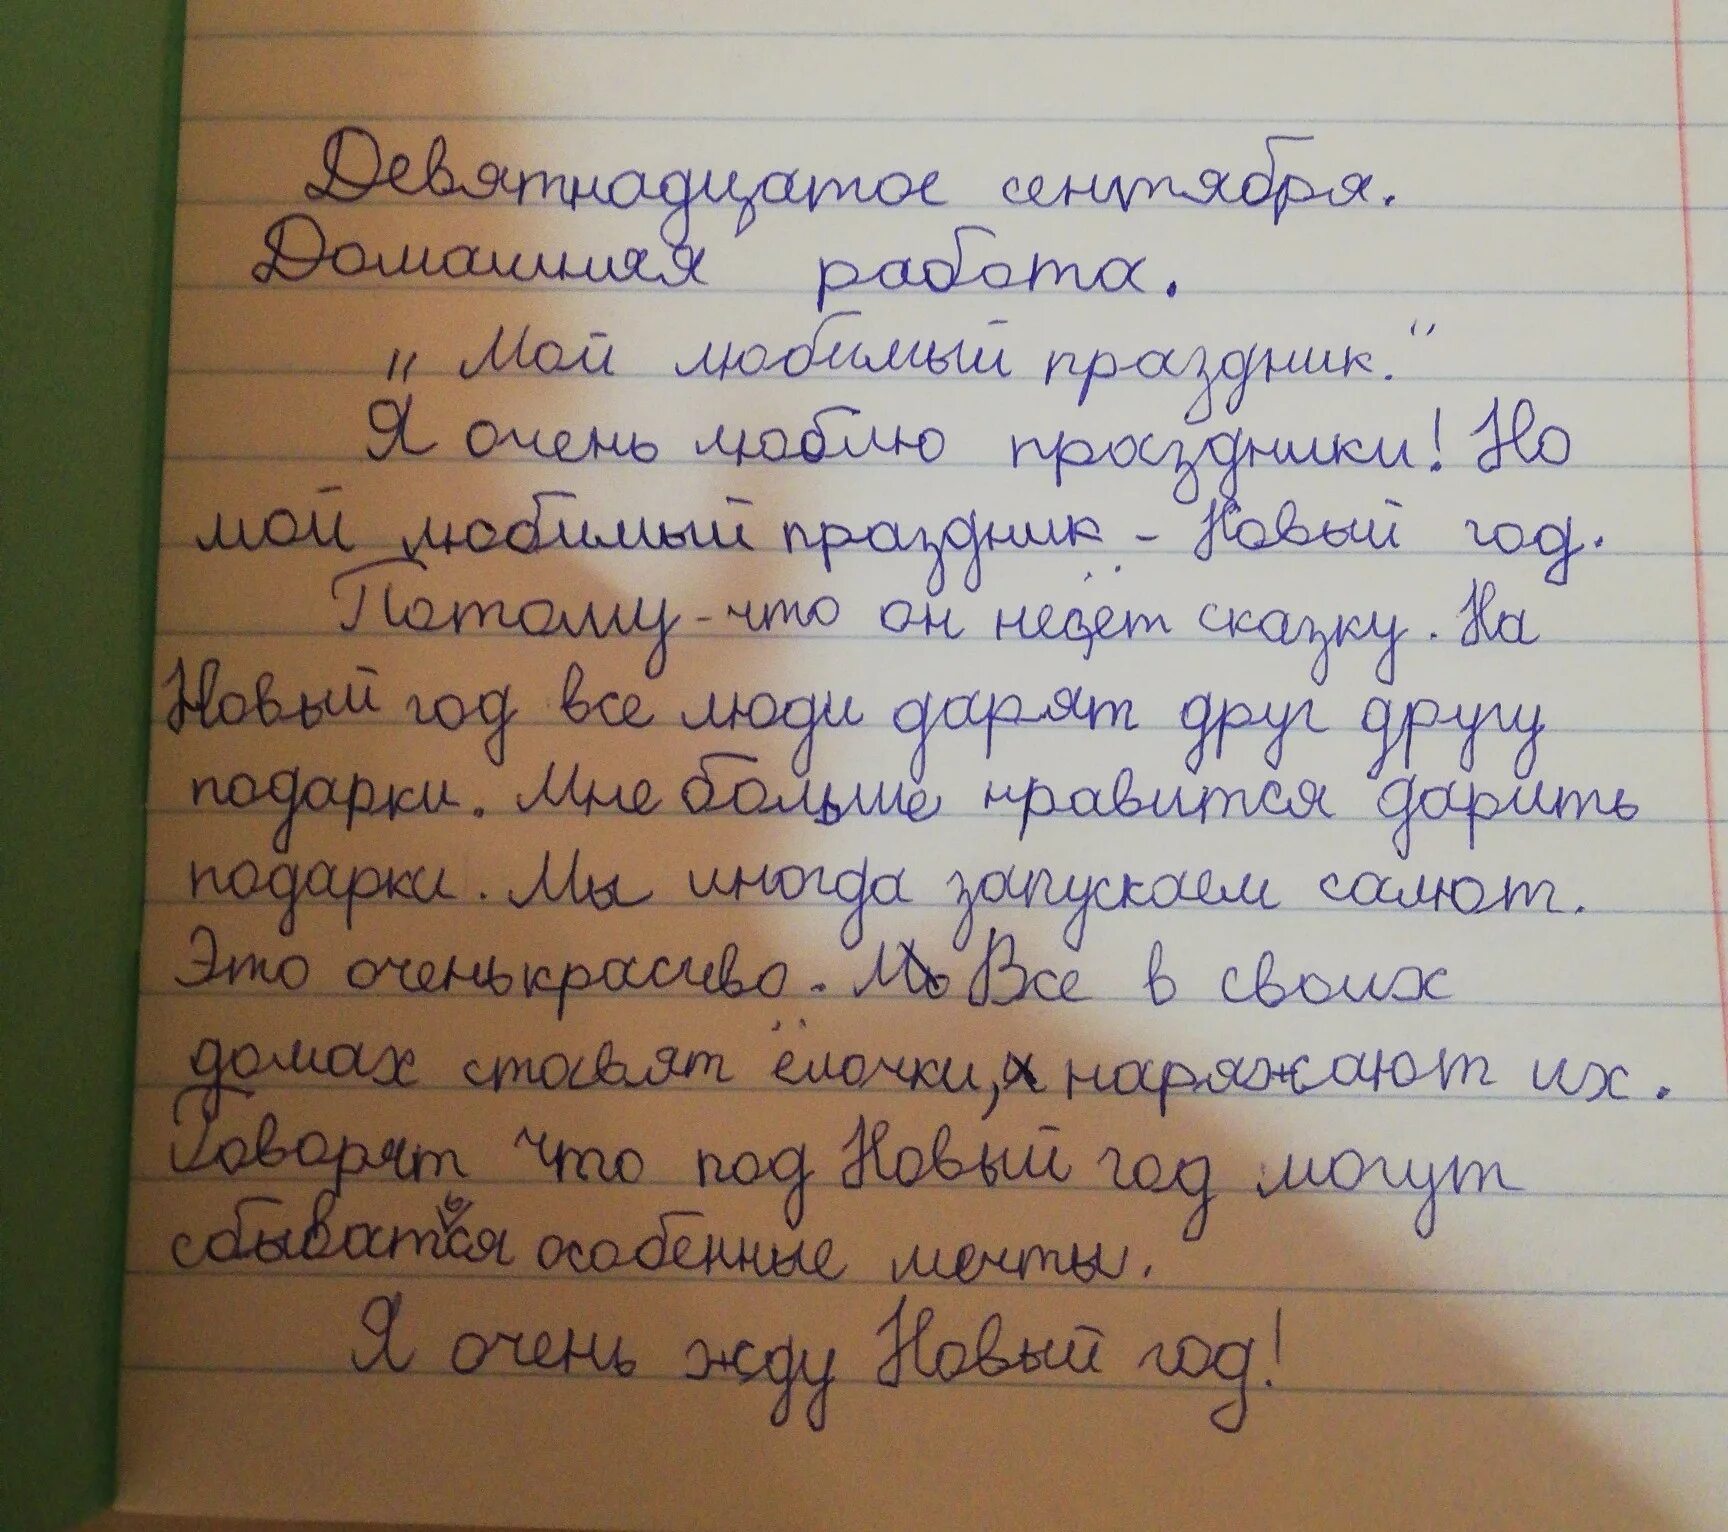 Девятнадцатое сентября.
Домашняя работа.
„Мой любимый праздник.“
Я очень люблю праздники! Но
мой любимый праздник - Новый год.
Потому-что он несёт сказку. На
Новый год все люди дарят друг другу
подарки. Мне больше нравится дарить
подарки. Мы иногда запускаем салют.
Это очень красиво. Все в своих
домах ставят ёлочки, наряжают их.
Говорят что под Новый год могут
сбываться особенные мечты.
Я очень жду Новый год!